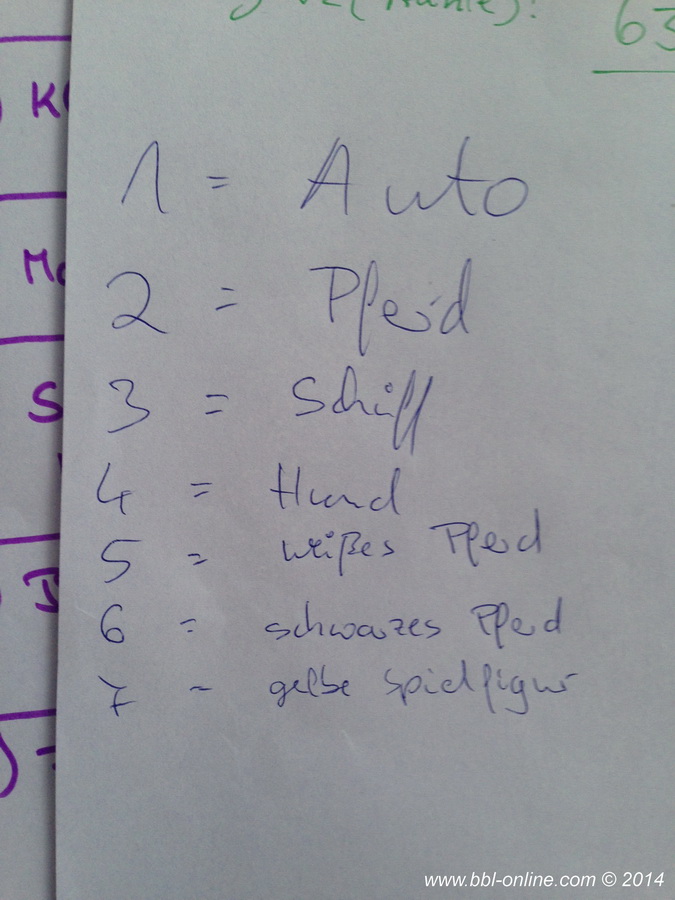 63
K
1 = Auto
M
2 = Pferd
3 = Schiff
S
4 = Hund
5 = weißes Pferd
6 = schwarzes Pferd
7 = gelbe Spielfigur
www.bbl-online.com © 2014